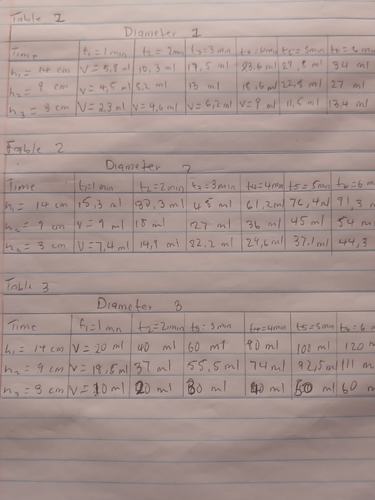 Table 1
Diameter 1
Time t1 = 1 min t2 = 2 min t3 = 3 min t4 = 4 min t5 = 5 min t6 = 6 min
h1 = 14 cm V = 5,8 ml 10,3 ml 17,5 ml 23,6 ml 29,8 ml 34 ml
h2 = 9 cm V = 4,5 ml 8,2 ml 13 ml 18,6 ml 22,8 ml 27 ml
h3 = 3 cm V = 2,3 ml V = 4,6 ml V = 6,2 ml V = 9 ml 11,5 ml 13,4 ml
Table 2
Diameter 2
Time t1 = 1 min t2 = 2 min t3 = 3 min t4 = 4 min t5 = 5 min t6 = 6 m
h1 = 14 cm 15,3 ml 30,3 ml 45 ml 61,2 ml 76,4 ml 91,3 m
h2 = 9 cm V = 9 ml 18 ml 27 ml 36 ml 45 ml 54 m
h3 = 3 cm V = 7,4 ml 14,8 ml 22,2 ml 29,6 ml 37,1 ml 44,3
Table 3
Diameter 3
Time t1 = 1 min t2 = 2 min t3 = 3 min t4 = 4 min t5 = 5 min t6 = 6
h1 = 14 cm V = 20 ml 40 ml 60 ml 80 ml 100 ml 120 m
h2 = 9 cm V = 18,5 ml 37 ml 55,5 ml 74 ml 92,5 ml 111 m
h3 = 3 cm V = 10 ml 20 ml 30 ml 40 ml 50 ml 60 m